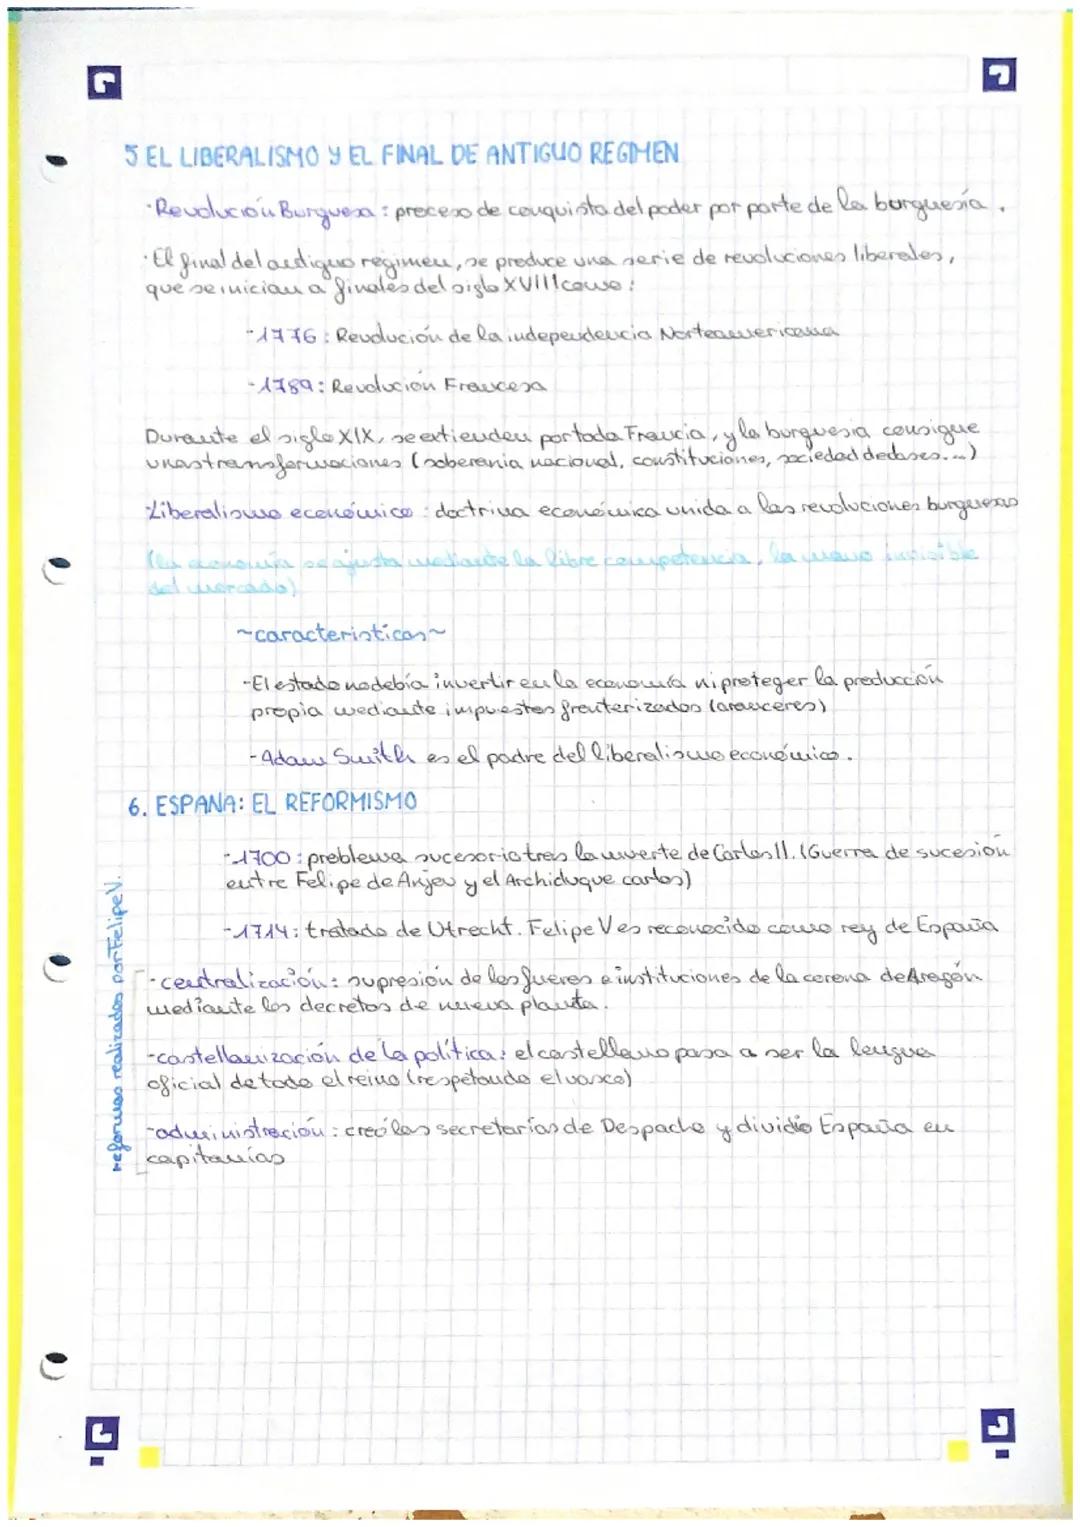 5 EL LIBERALISMO Y EL FINAL DE ANTIGUO REGIMEN
·Revolución Burguesa: proceso de conquista del poder por parte de la burguesía.
·El final del antiguo régimen, se produce una serie de revoluciones liberales,
que se inician a finales del siglo XVIII como:
-1776: Revolución de la independencia Norteamericana
-1789: Revolución Francesa
Durante el siglo XIX, se extienden por toda Francia, y la burguesia consigue
unas transformaciones (soberania nacional, constituciones, sociedad de clases...)
Liberalismo económico: doctrina económica unida a las revoluciones burguesas
(la economía se ajusta mediante la libre competencia, la mano invisible
del mercado)
~caracteristicas~
-El estado no debía invertir en la economía ni proteger la producción
propia mediante impuestos fronterizados (aranceres)
-Adam Smith es el padre del liberalismo económico.
6. ESPAÑA: EL REFORMISMO
-1700: problema sucesorio tras la muerte de Carlos II. (Guerra de sucesión
entre Felipe de Anjou y el Archiduque carlos)
-1714: tratado de Utrecht. Felipe V es reconocido como rey de España
reformas realizadas por Felipe V.
-centralización: supresión de los fueros e instituciones de la corona de Aragón
mediante los decretos de nueva planta.
-castellanización de la política: el castellano pasa a ser la lengua
oficial de todo el reino (respetando el vasco)
-administración: creó las secretarías de Despacho y dividió España en
capitanías